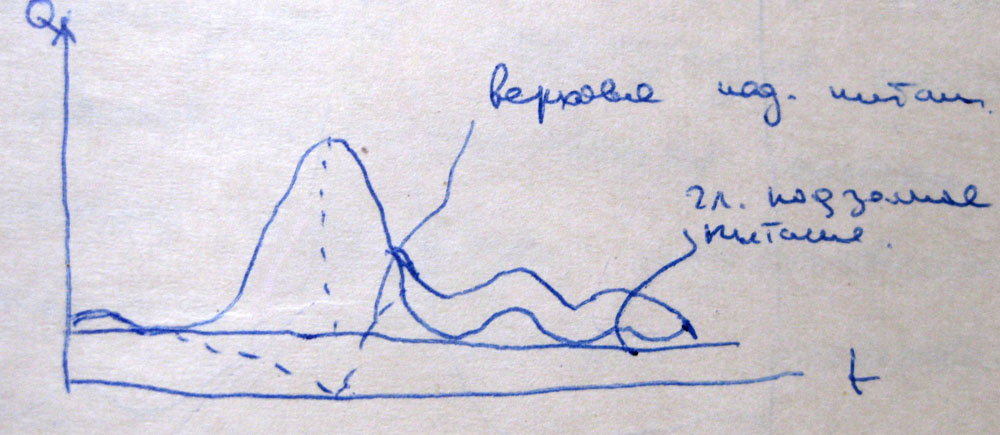 Q
верховые под. питан.
гл. подземное
питание.
t